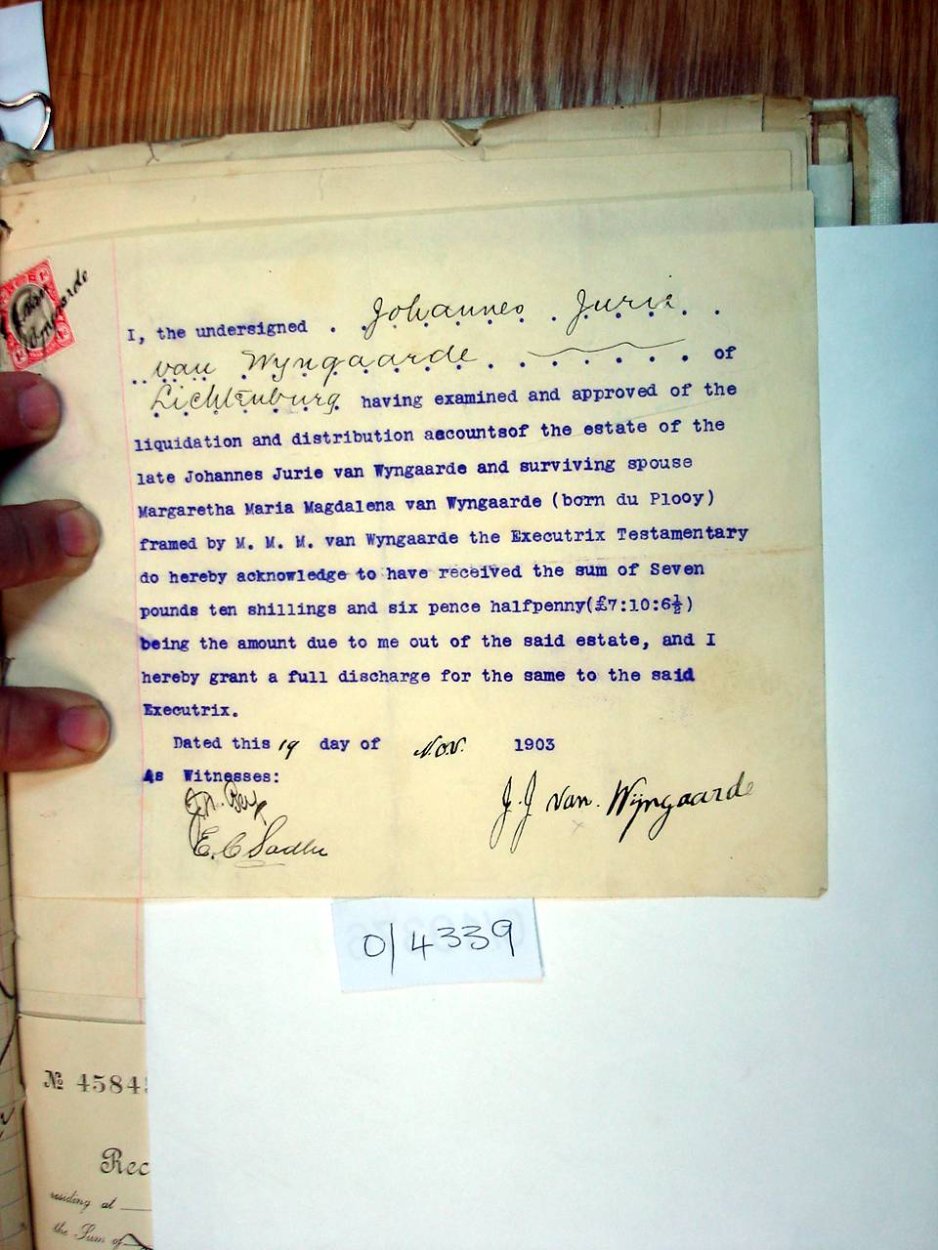 I, the undersigned . Johannes Jurie
van Wyngaarde . . . . . . of
Lichtenburg having examined and approved of the
liquidation and distribution aecountsof the estate of the
late Johannes Jurie van Wyngaarde and surviving spouse
Margaretha Maria Magdalena van Wyngaarde (born du Plooy)
framed by M. M. M. van Wyngaarde the Executrix Testamentary
do hereby acknowledge to have received the sum of Seven
pounds ten shillings and six pence halfpenny(£7:10:6½)
being the amount due to me out of the said estate, and I
hereby grant a full discharge for the same to the said
Executrix.
Dated this 19 day of Nov. 1903
As Witnesses:
J.J van. Wijngaarde
E. C Sadler
0/4339
№ 4584
Rec
residing at
the Sum of